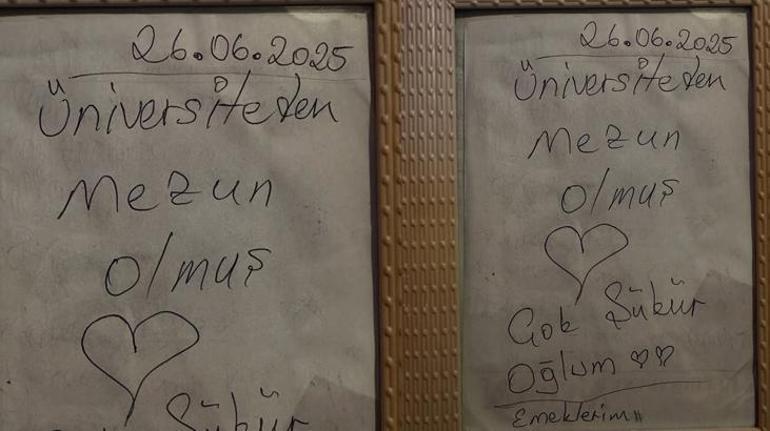 26.06.2025
Üniversiteden
Mezun
olmuş
Şükür
26.06.2025
Üniversiteden
Mezun
olmuş
Çok Şükür
Oğlum ♡♡
Emeklerim